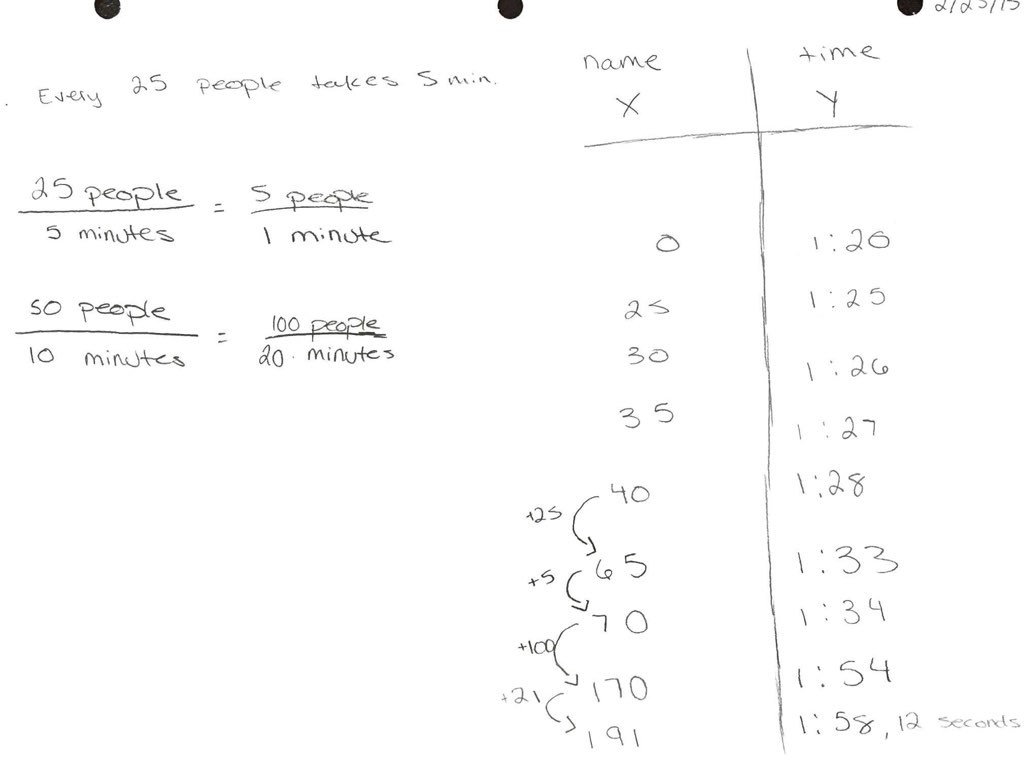 2/23/15
. Every 25 people takes 5 min.
25 people / 5 minutes = 5 people / 1 minute
50 people / 10 minutes = 100 people / 20 minutes
name time
X Y
0 1:20
25 1:25
30 1:26
35 1:27
40 1:28
+25
65 1:33
+5
70 1:34
+100
170 1:54
+21
191 1:58, 12 seconds